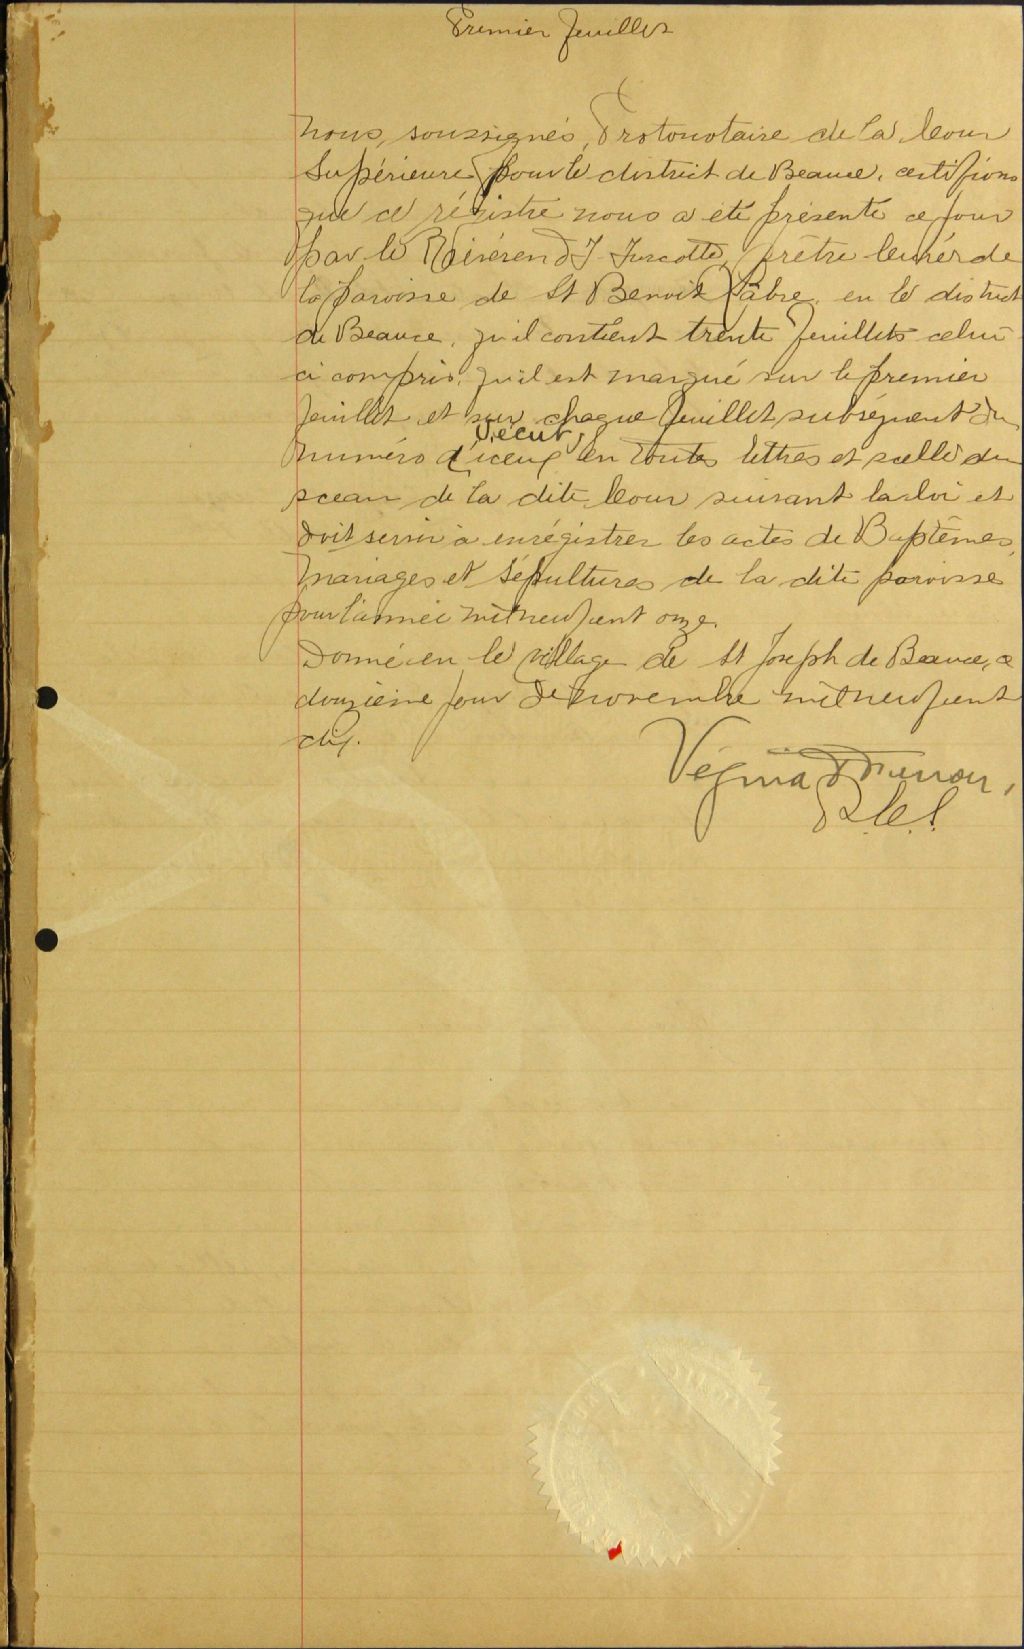 Premier feuillet
Nous, soussignés, Protonotaire de la Cour
Supérieure pour le district de Beauce, certifions
que ce régistre nous a été présenté ce jour
par le Révérend J. Turcotte, prêtre Curé de
la paroisse de St Benoit Labre, en le district
de Beauce, qu'il contient trente feuillets celui
ci compris, qu'il est marqué sur le premier
feuillet et sur chaque feuillet subséquent du
numéro d'iceux écrit en toutes lettres et scellé du
sceau de la dite Cour suivant la loi et
doit servir à enrégistrer les actes de Baptêmes,
mariages et sépultures de la dite paroisse
pour l'année mil neuf cent onze.
Donné en le village de St Joseph de Beauce, ce
douzième jour de novembre mil neuf cent
dix.
Vézina &
P.C.S.